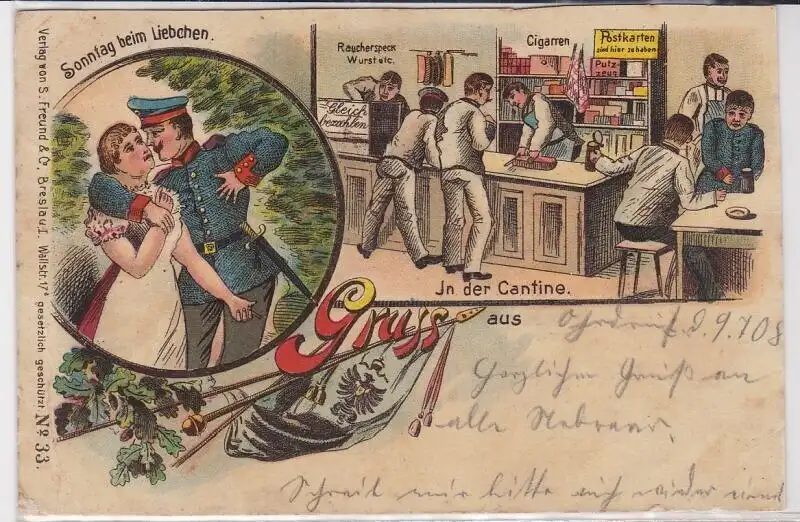 Sonntag beim Liebchen.
Raucherspeck
Wurst etc.
Cigarren
Postkarten
sind hier zu haben
Putz-
zeug
Gleich
bezahlen
In der Cantine.
Gruss aus
Ohrdruf d. 9.7.08
Herzlichen Gruß an
alle
Schreib mir bitte auch wieder
Verlag von S. Freund & Co, Breslau I. Wallstr. 17a gesetzlich geschützt. No 33.